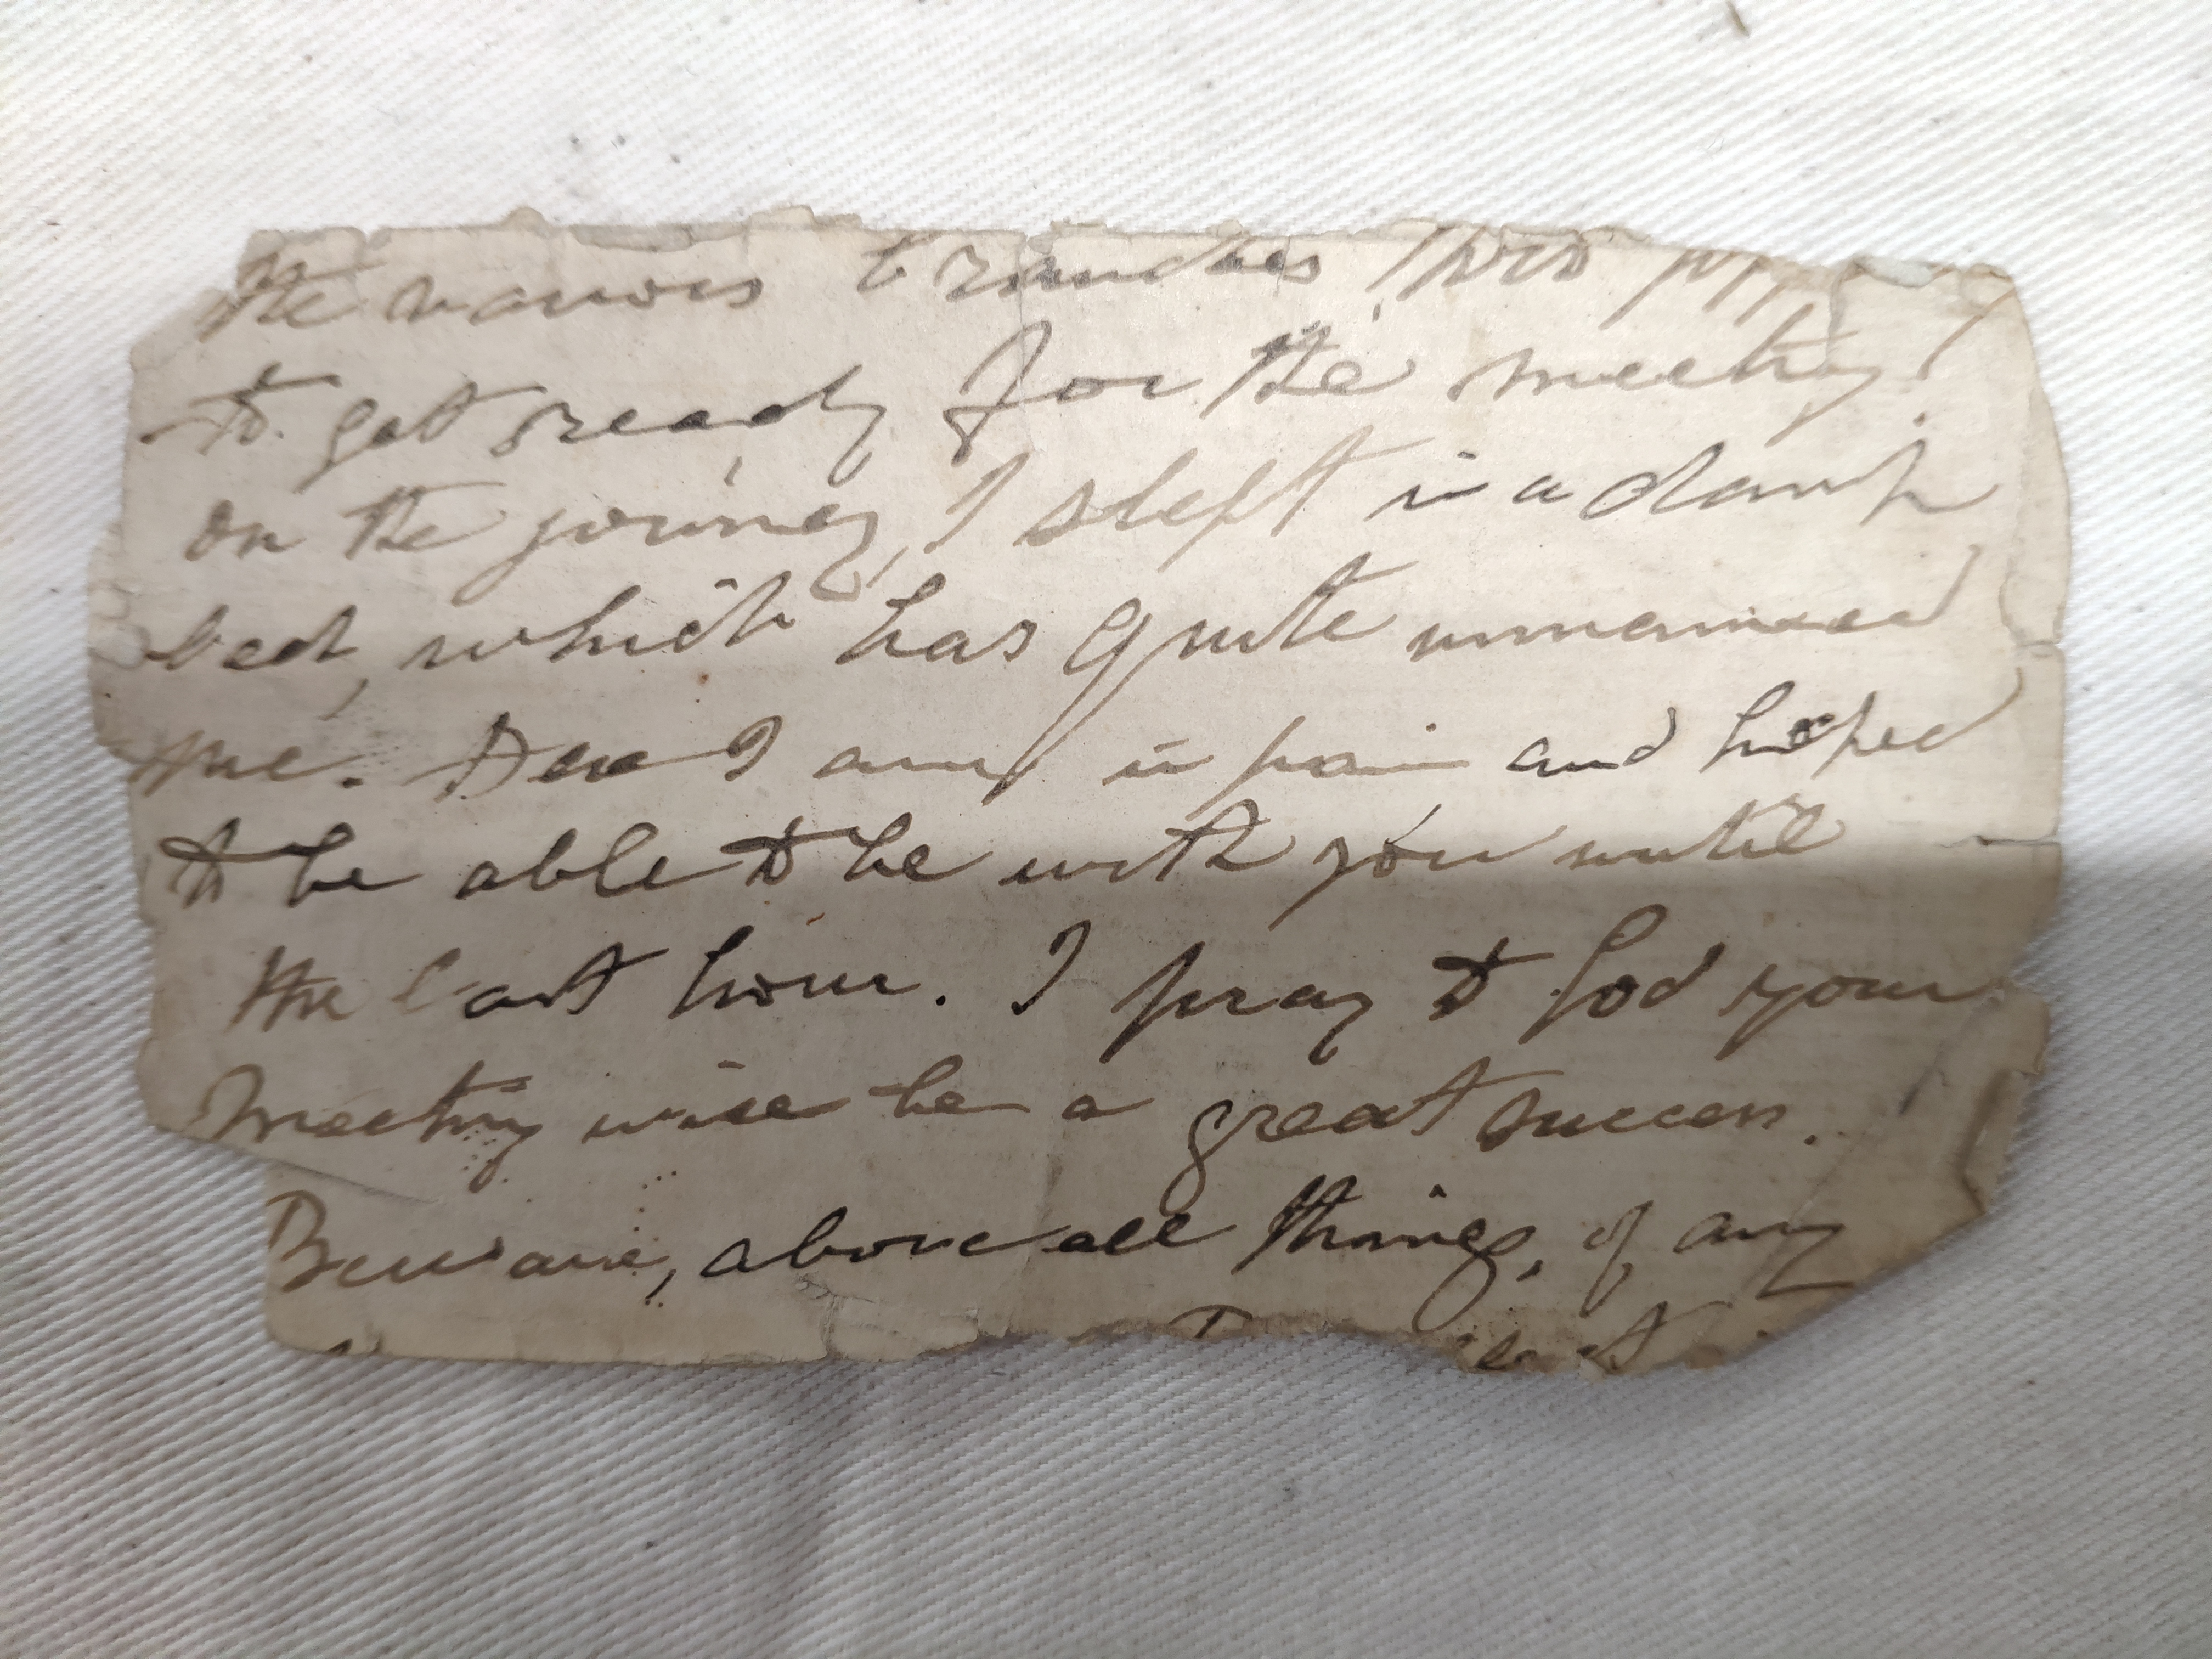 the various branches
to get ready for the meeting.
on the journey, I slept in a damp
bed, which has quite unmanned
me. Here I am in pain and hoped
to be able to be with you until
the last hour. I pray to God your
meeting will be a great success.
Beware, above all things, of any